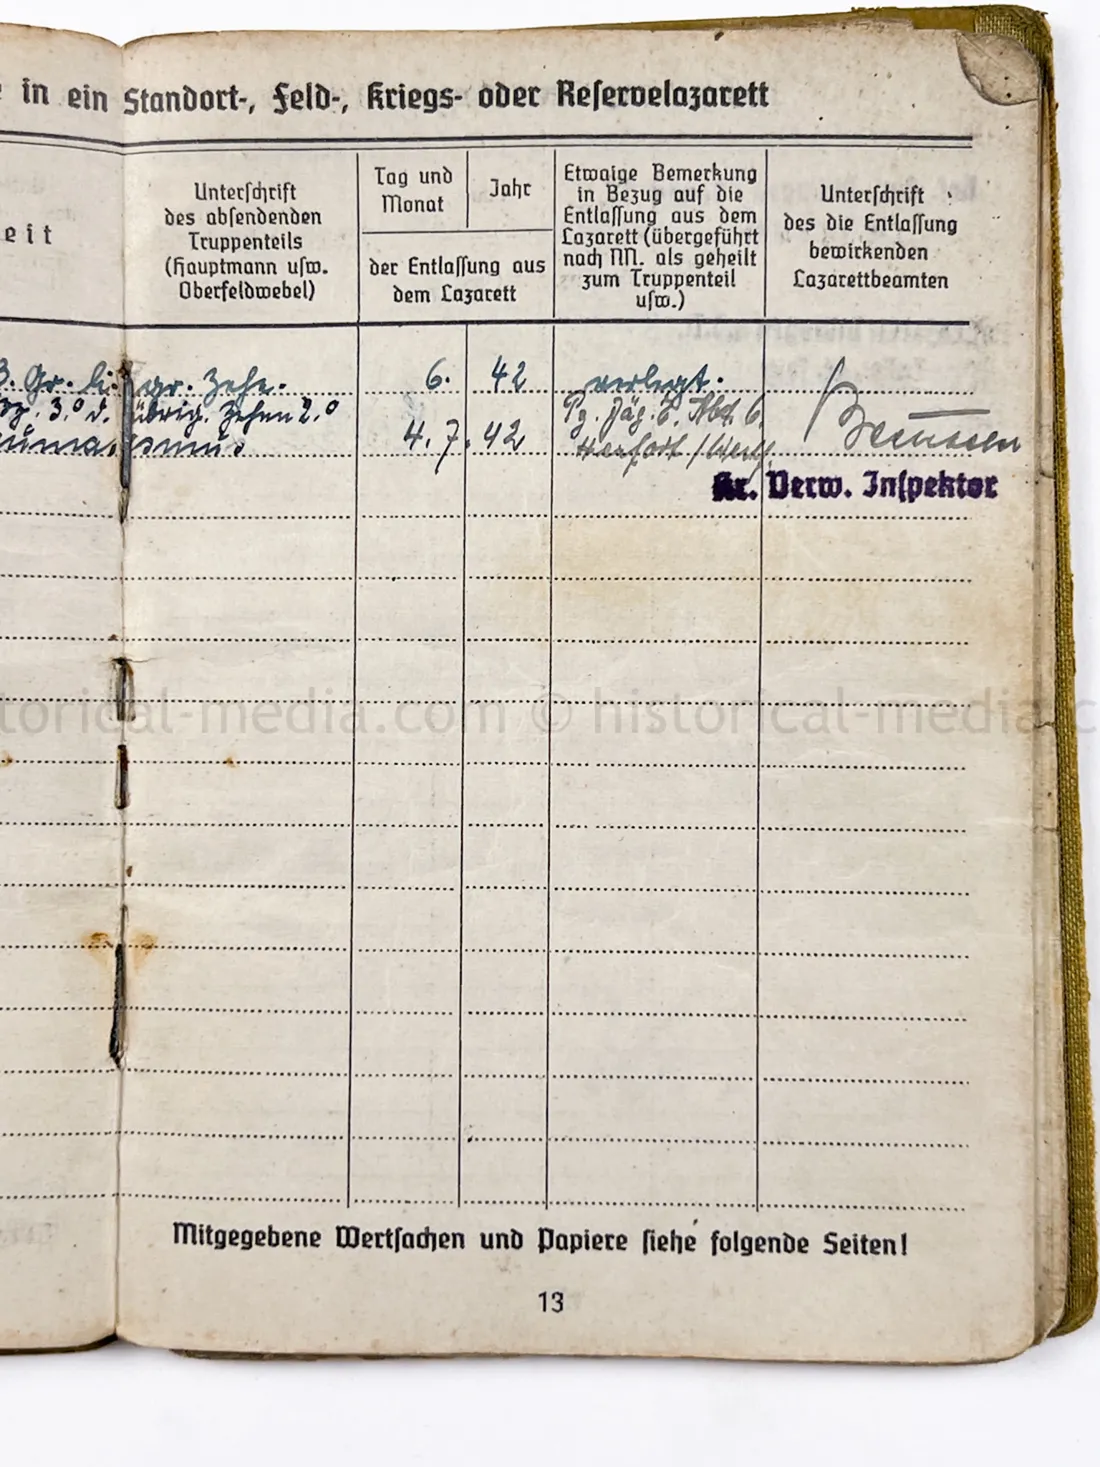 in ein Standort-, Feld-, Kriegs- oder Reservelazarett
eit
Unterschrift
des absendenden
Truppenteils
(Hauptmann usw.
Oberfeldwebel)
Tag und
Monat
Jahr
der Entlassung aus
dem Lazarett
Etwaige Bemerkung
in Bezug auf die
Entlassung aus dem
Lazarett (übergeführt
nach NN. als geheilt
zum Truppenteil
usw.)
Unterschrift
des die Entlassung
bewirkenden
Lazarettbeamten
3. Gr. li. gr. Zehe. 6. 42 verlegt.
3.° d. übrig. Zehen 2.° Pz. Jäg. E. Abt. 6
4. 7. 42 Herford / Westf
Kr. Verw. Inspektor
historical-media.com © historical-media.c
Mitgegebene Wertsachen und Papiere siehe folgende Seiten!
13